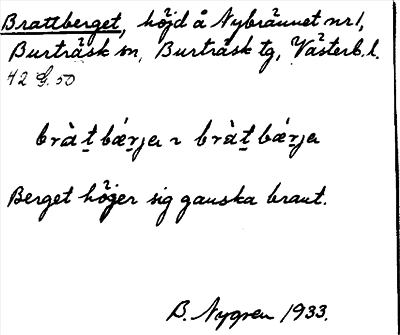 Brattberget, höjd å Nybrännet nr 1,
Burträsk sn, Burträsk tg, Västerb. l.
42 G. 50
bràt̲bǽr̲ja ~ bràt̲bǽr̲ja
Berget höjer sig ganska brant.
B. Nygren 1933.